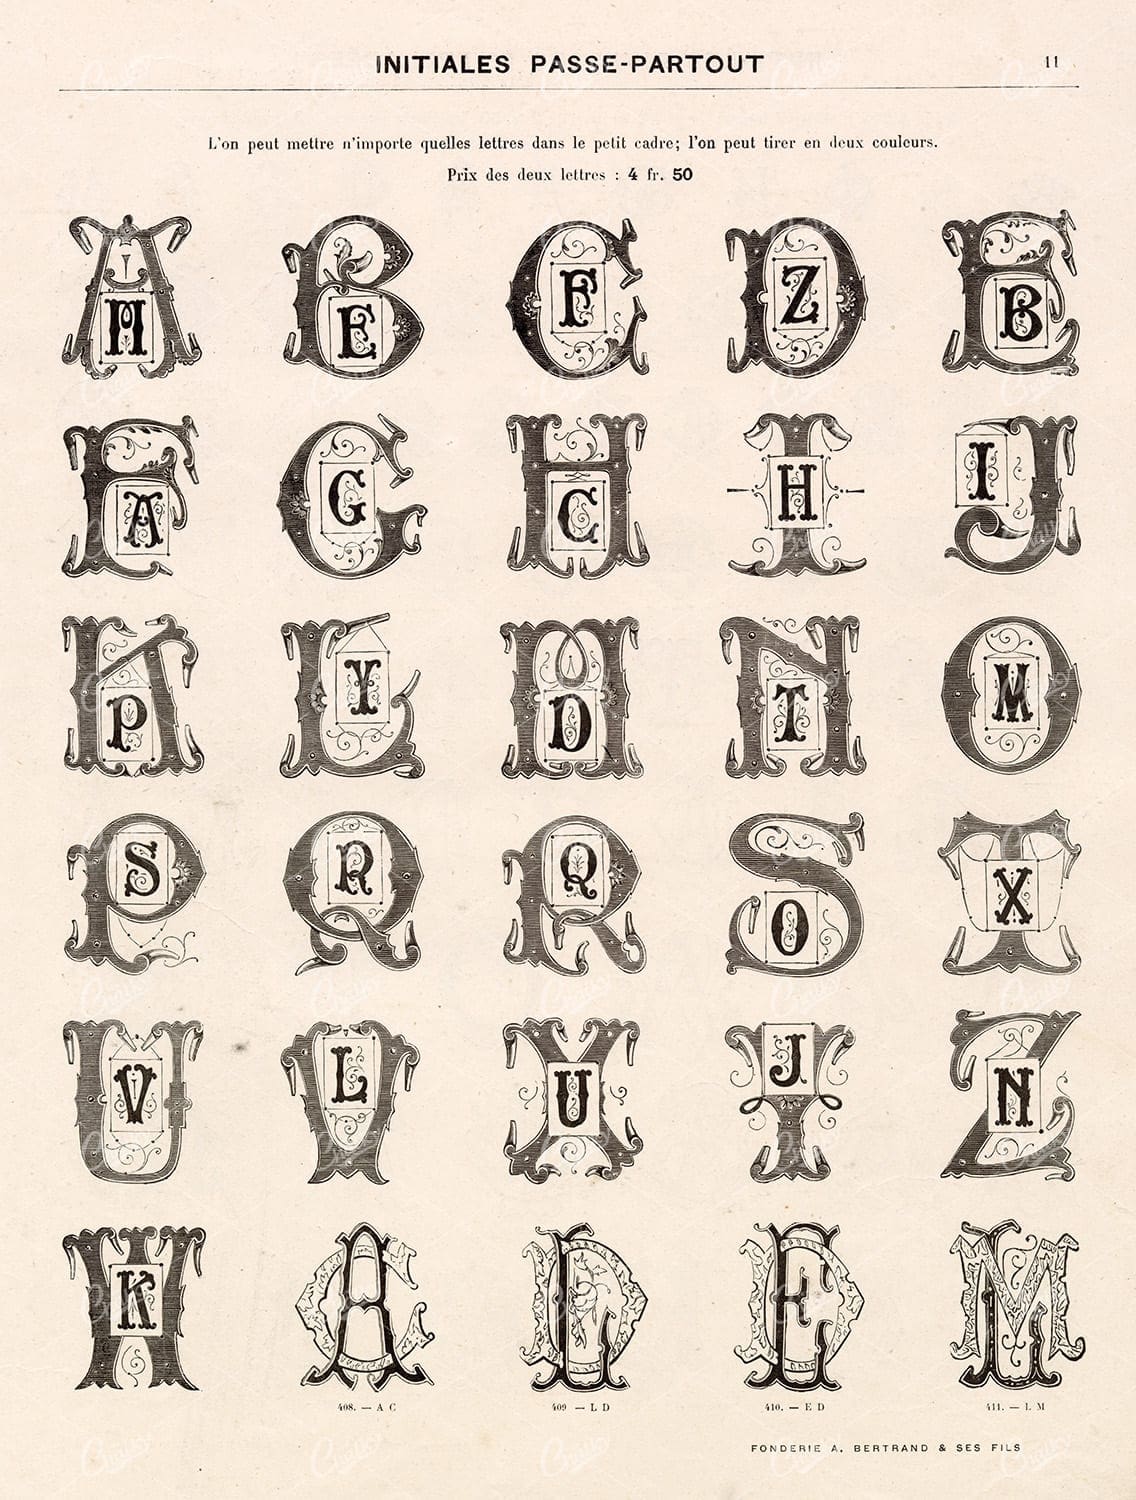 INITIALES PASSE-PARTOUT 11
L'on peut mettre n'importe quelles lettres dans le petit cadre; l'on peut tirer en deux couleurs.
Prix des deux lettres : 4 fr. 50
A B C D E
M E F Z B
F G H I J
A G C H I
K L M N O
P Y D T M
P Q R S T
S R Q O X
U V X Y Z
V L U J N
W
K
408. — A C 409 — L D 410. — E D 411. — L M
FONDERIE A. BERTRAND & SES FILS